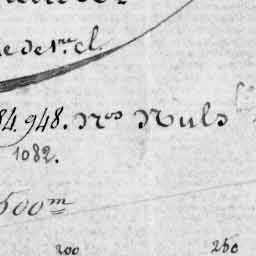 e de 1re cl.
84.948. Nos Nuls
1082.
500m
200 250